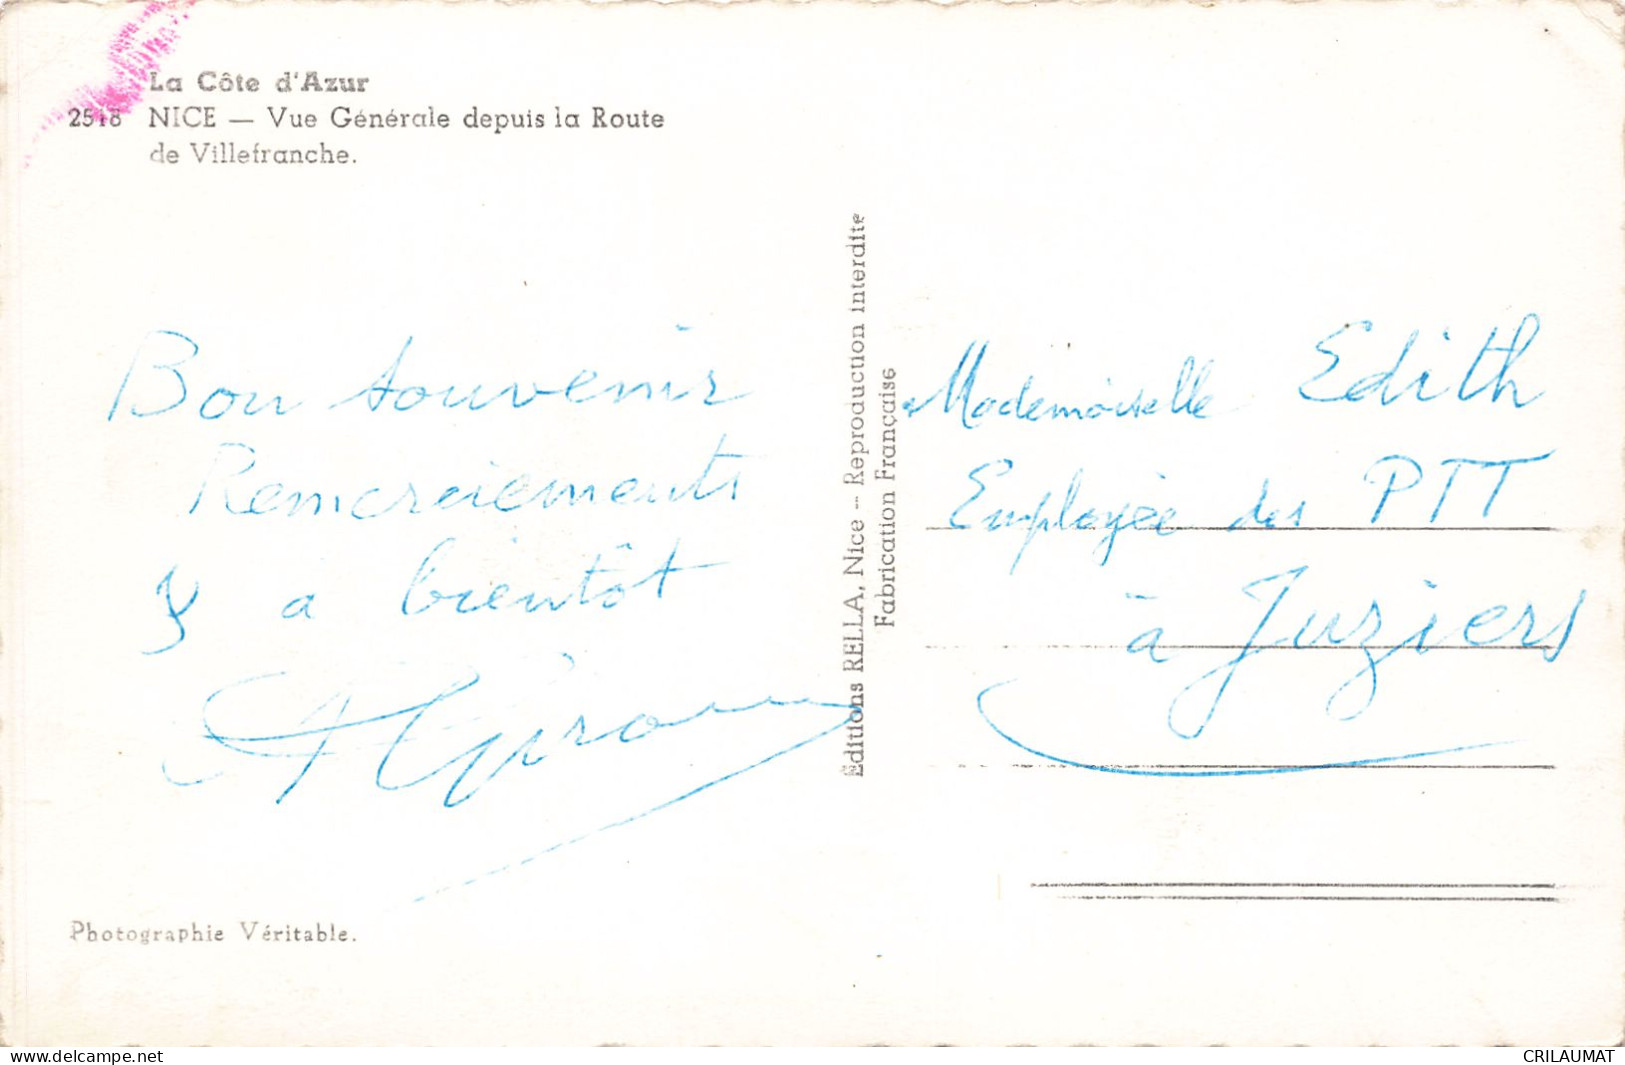 La Côte d'Azur
2518 NICE — Vue Générale depuis la Route
de Villefranche.
Bon souvenir
Remerciements
& a bientôt
Editions RELLA, Nice -- Reproduction interdite
Fabrication Française
Mademoiselle Edith
Employée des PTT
à Juziers
Photographie Véritable.
www.delcampe.net
CRILAUMAT